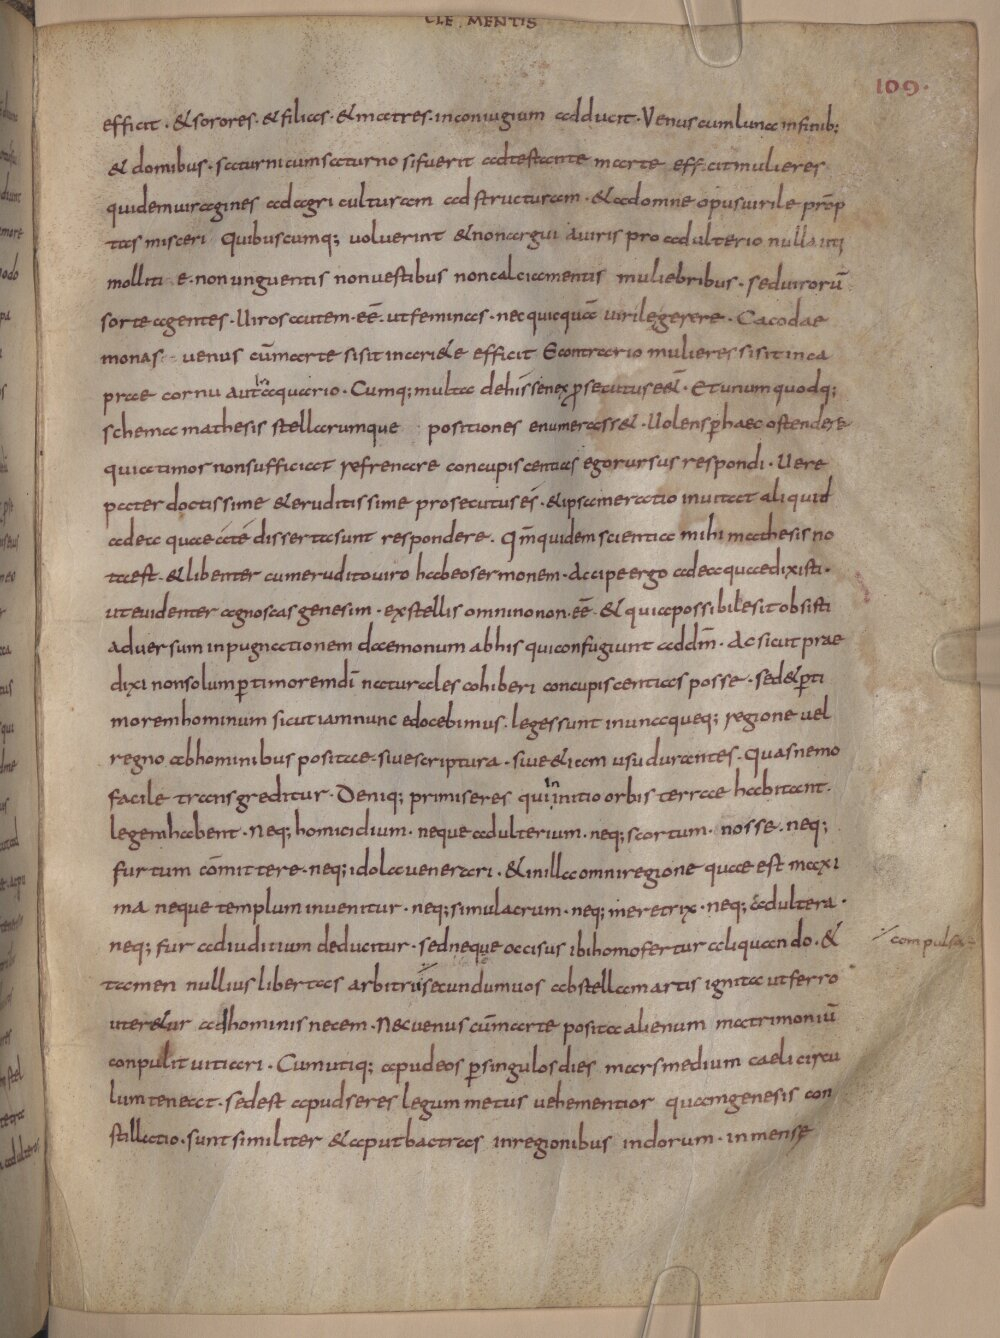 CLEMENTIS
109·
efficit · & sorores · & filias · & matres · in coniugium adducit · Venus cum luna in finib;
& domibus · saturni cum saturno si fuerit adtestante marte efficit mulieres
quidem uiragines ad agri culturam ad structuram · & ad omne opus uirile prōp
tas misceri quibuscumq; uoluerint & non argui auiris pro adulterio nulla uti
molliti e · non unguentis non uestibus non calciamentis muliebribus · sed uirorū
sorte agentes · Uiros autem · eē · ut feminas · nec quicquā uirile gerere · Cacodae
monas · uenus cū marte si sit in ari&e efficit E contrario mulieres si sit in ca
prae cornu aut in aquario · Cumq; multa de his senex ꝑsecutus e&̄ · Et unum quodq;
schema mathesis stellarumque positiones enumerass& · Uolens ꝑ haec ostendere
quia timor non sufficiat refrenare concupiscentias ego rursus respondi · Uere
pater doctissime & eruditissime prosecutus es · & ipsa me ratio inuitat aliquid
ad ea quae a te disserta sunt respondere · Qm̄ quidem scientia mihi mathesis no
ta est · & libenter cum erudito uiro habeo sermonem · Accipe ergo ad ea quae dixisti ·
ut euidenter agnoscas genesim · ex stellis omnino non · eē · & quia possibile sit obsisti
aduersum inpugnationem daemonum ab his qui confugiunt ad dm̄ · Ac sicut prae
dixi non solum ꝑ timorem dī naturales cohiberi concupiscentias posse · sed & ꝑ ti
morem hominum sicut iam nunc edocebimus · leges sunt in unaqueq; regione uel
regno ab hominibus positae · siue scriptura · siue &iam usu durantes · quas nemo
facile transgreditur · Deniq; primi seres qui in initio orbis terrae habitant ·
legem habent · Neq; homicidium · neque adulterium · neq; scortum · nosse · neq;
furtum cōmittere · neq; idola uenerari · & in illa omni regione quae est maxi
ma neque templum inuenitur · neq; simulacrum · neq; meretrix · neq; adultera ·
neq; fur ad iuditium deducitur · sed neque occisus ibi homo fertur aliquando · &
compulsa
tamen nullius libertas arbitrii secundum uos ab stella martis ignita ut ferro
uter&ur ad hominis necem · Nec uenus cū marte posita alienum matrimoniū
conpulit uitiari · Cum utiq; apud eos ꝑ singulos dies mars medium caeli circu
lum teneat · sed est apud seres legum metus uehementior quam genesis con
stillatio · sunt similiter & aput bactras in regionibus indorum · inmense